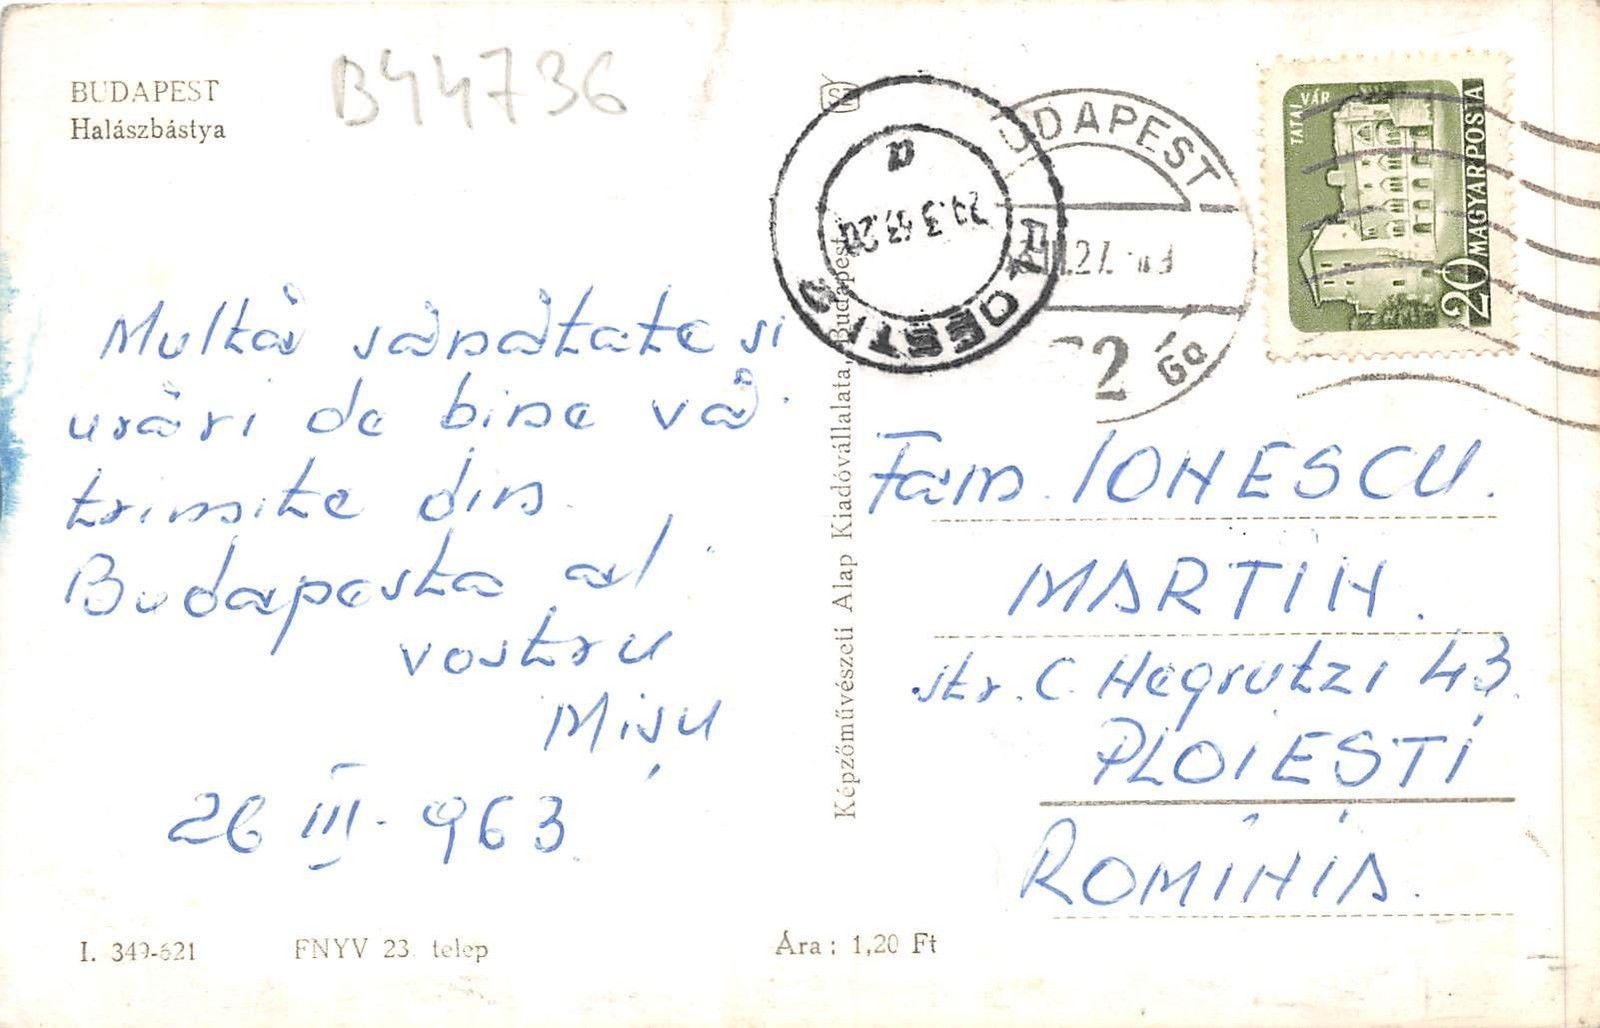 BUDAPEST
Halászbástya
B44736
Multă sănătate și
urări de bine vă
trimite din
Budapesta al
vostru
Mișu
26 III - 963
I. 349-621
FNYV 23. telep
Ára: 1,20 Ft
Képzőművészeti Alap Kiadóvállalata, Budapest
PLOEȘTI
29.3.63.20
BUDAPEST
72
TATAI VÁR
20 MAGYAR POSTA
Fam. IONESCU.
MARTIN.
str. C. Negrutzi 43.
PLOIEȘTI
ROMÎNIA.